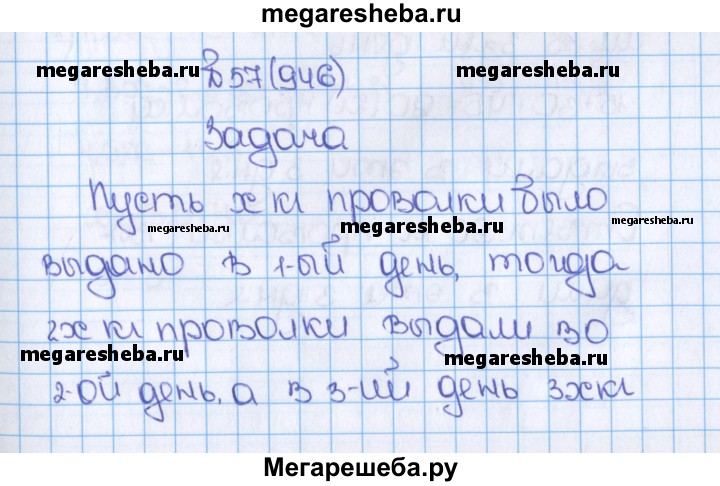 megaresheba.ru
megaresheba.ru № 57 (946) megaresheba.ru
Задача
Пусть х кг проволки было
megaresheba.ru megaresheba.ru megaresheba.ru
выдано в 1-ый день, тогда
2х кг проволки выдали во
megaresheba.ru megaresheba.ru
2-ой день, а в 3-ий день 3х кг
Мегарешеба.ру